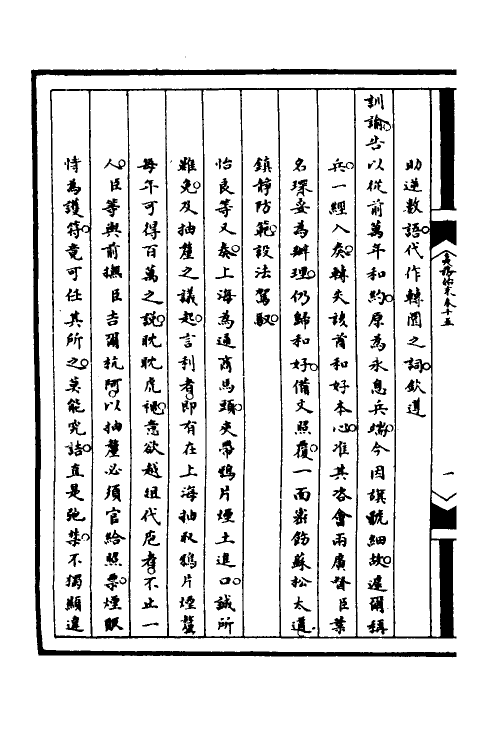 夷務始末卷十五
一
助逆數語代作轉圜之詞欽遵
訓諭告以從前萬年和約原為永息兵端今因旗號細故遽爾稱
兵一經入奏轉失該酋和好本心准其咨會兩廣督臣葉
名琛妥為辦理仍歸和好備文照覆一面密飭蘇松太道
鎮靜防範設法駕馭
怡良等又奏上海為通商馬頭夾帶鴉片煙土進口誠所
難免及抽釐之議起言利者即有在上海抽取鴉片煙釐
每年可得百萬之說眈眈虎視意欲越俎代庖者不止一
人臣等與前撫臣吉爾杭阿以抽釐必須官給照票煙販
恃為護符竟可任其所之莫能究詰直是弛禁不獨顯違